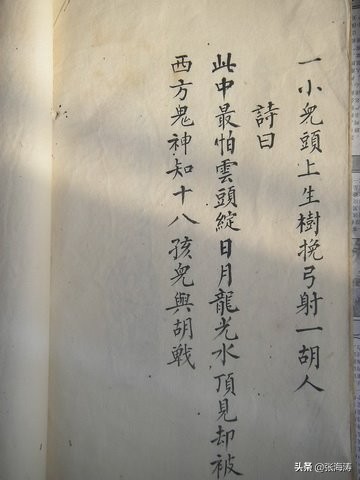 一小兒頭上生樹挽弓射一胡人
詩曰
此中最怕雲頭綻日月龍光水頂見却被
西方鬼神知十八孩兒與胡戰
头条 @张海涛